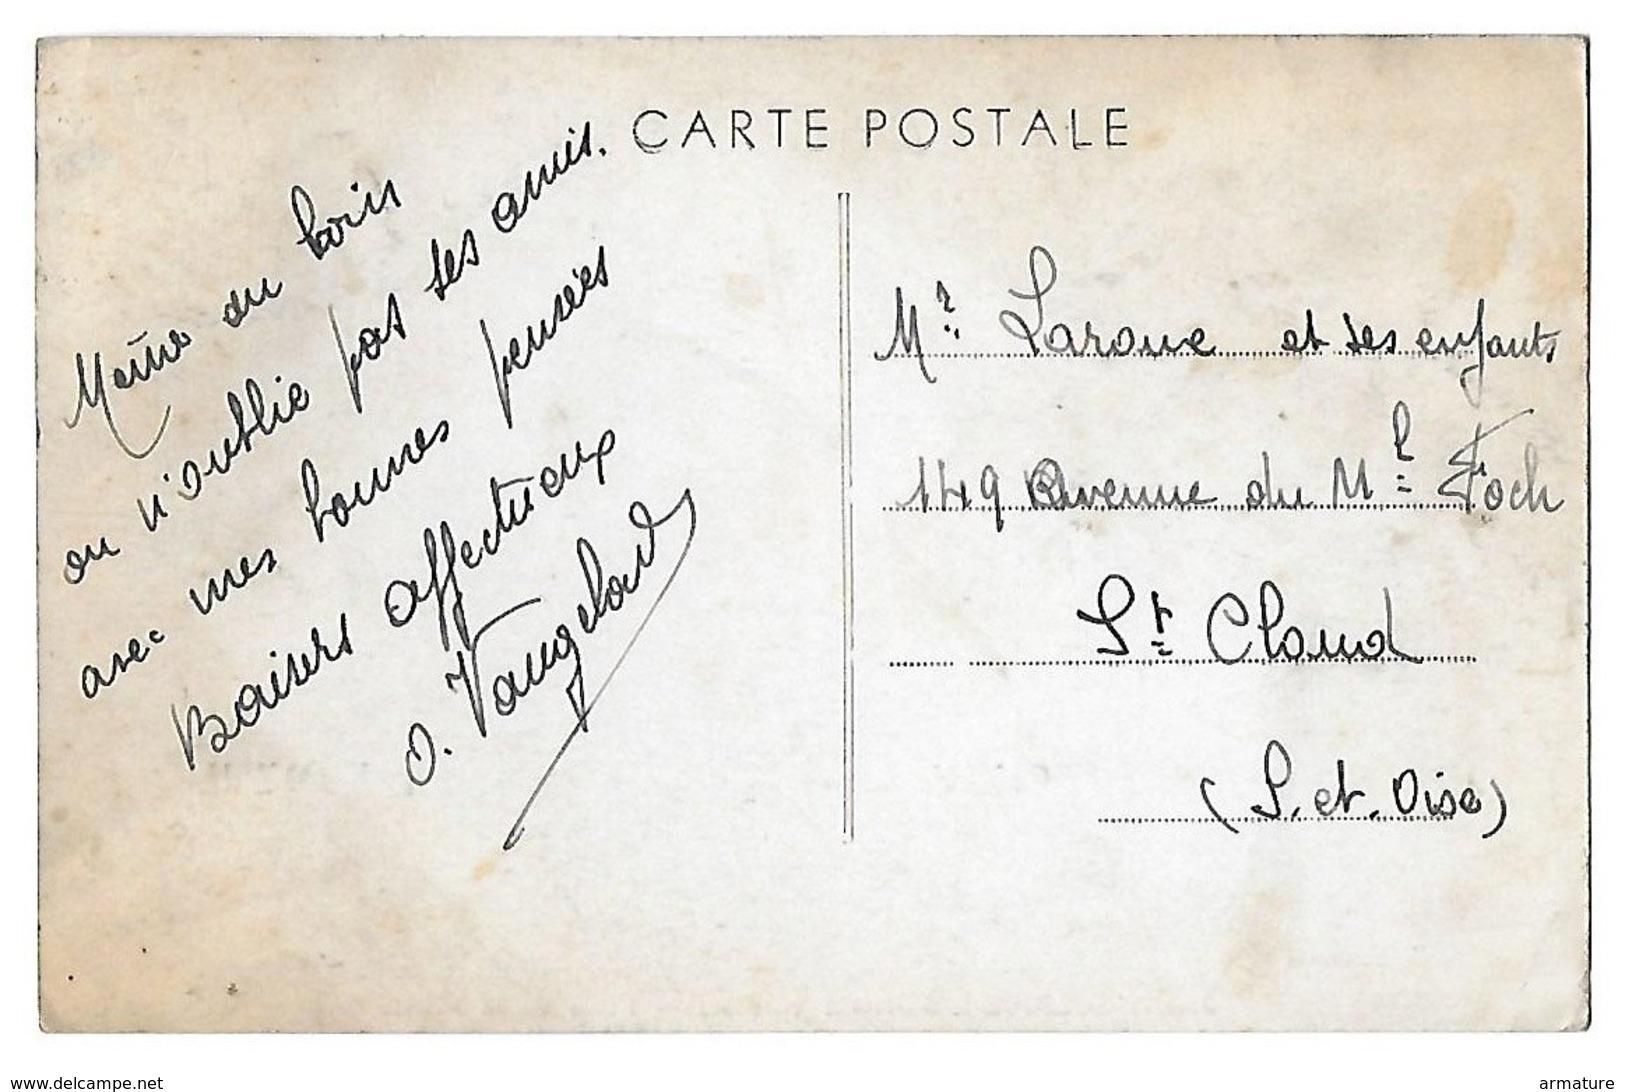 CARTE POSTALE
Même du loin
on n'oublie pas ses amis.
avec mes bonnes pensées
Baisers affectueux
O. Vangelard
Mr. Laroue et ses enfants
149 Avenue du Ml Foch
St. Cloud
(S. et. Oise)
www.delcampe.net
armature